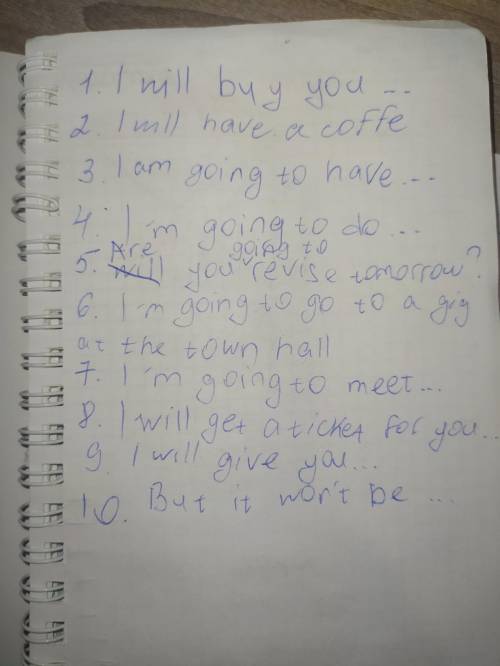 1. I will buy you ...
2. I will have a coffe
3. I am going to have ...
4. I'm going to do ...
Are going to
5. will you revise tomorrow?
6. I'm going to go to a gig
at the town hall
7. I'm going to meet ...
8. I will get a ticket for you ...
9. I will give you ...
10. But it won't be ...